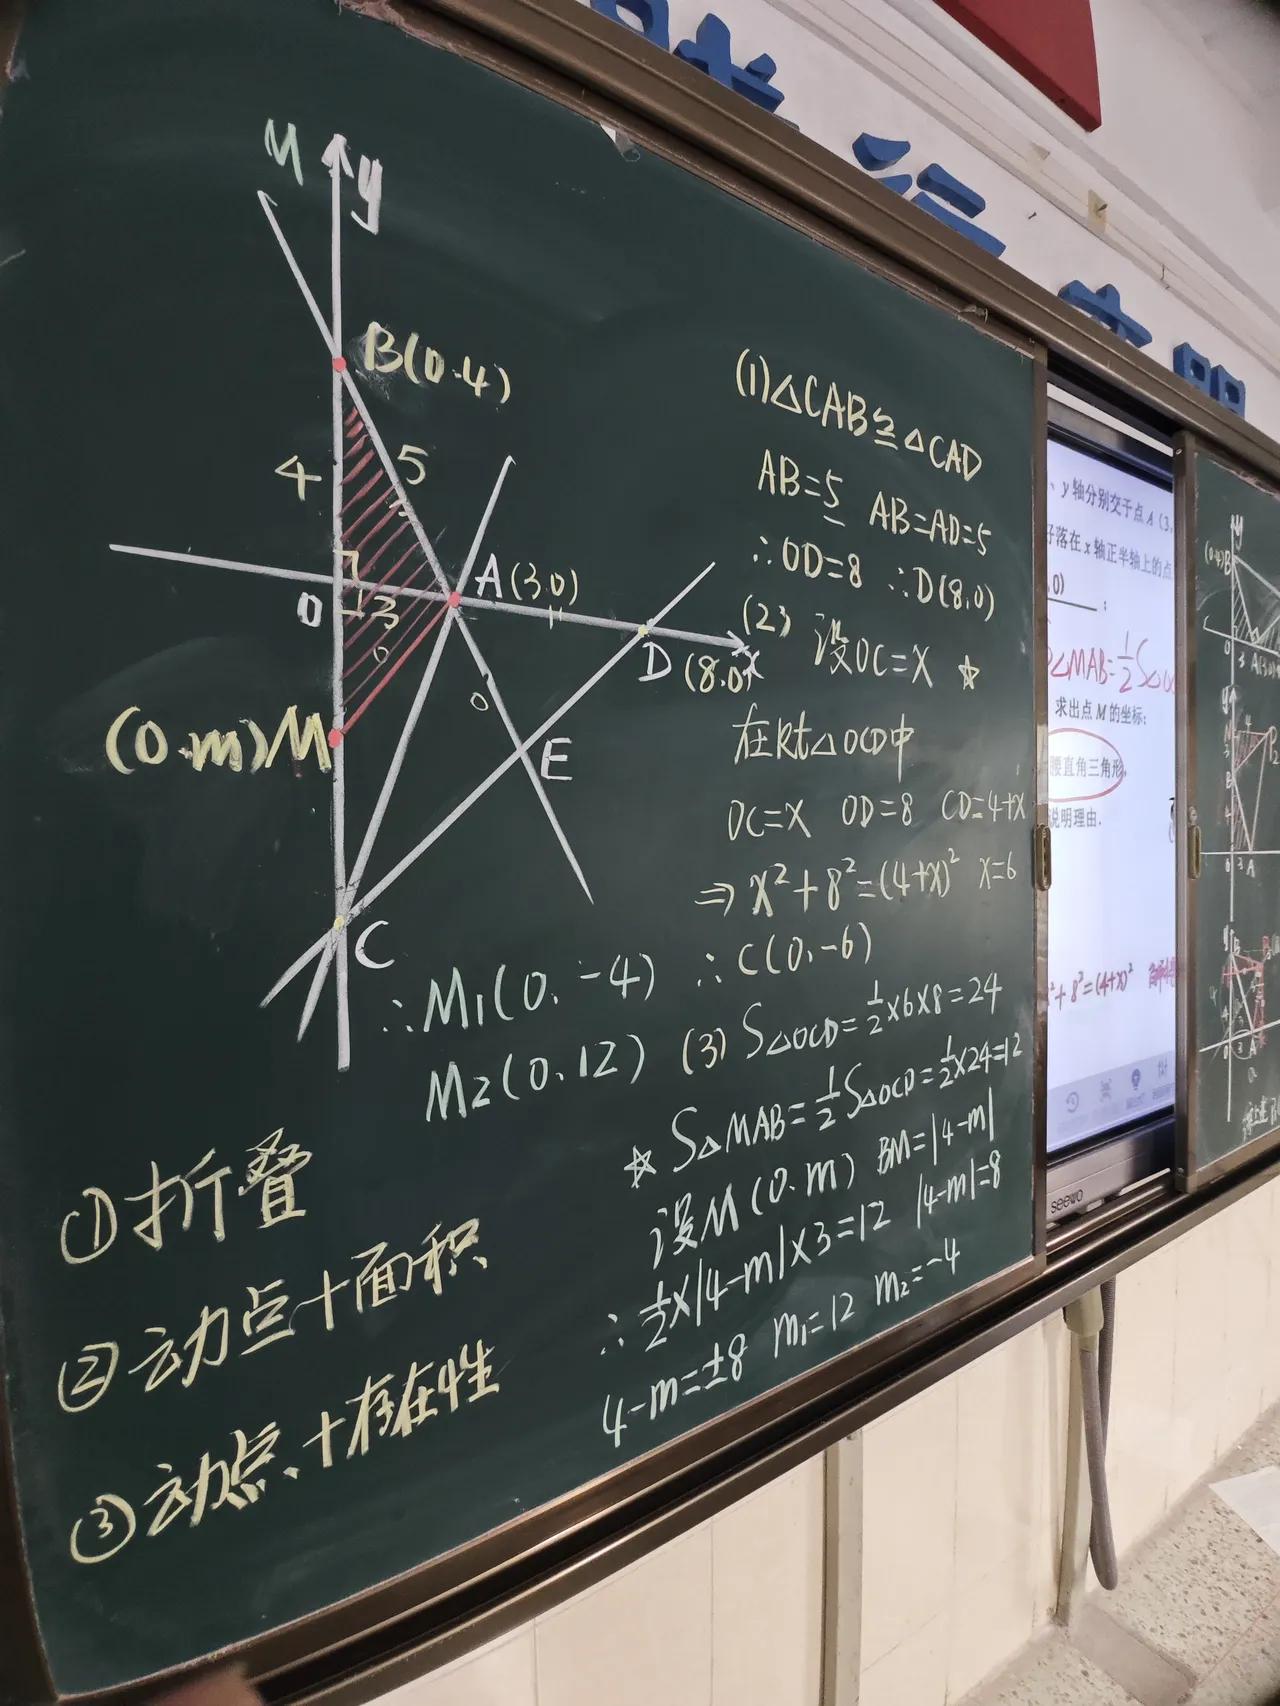 M
y
B(0.4)
4
5
O
3
A(3.0)
D
(8.0)
x
(0.m)M
E
C
(1)△CAB≌△CAD
AB=5 AB=AD=5
∴OD=8 ∴D(8,0)
(2) 设OC=X ☆
在Rt△OCD中
OC=X OD=8 CD=4+X
⇒ X²+8²=(4+X)² X=6
∴C(0,-6)
∴M1(0,-4)
M2(0,12)
(3) S△OCD=½×6×8=24
☆ S△MAB=½S△OCD=½×24=12
设M(0.m) BM=|4-m|
∴½×|4-m|×3=12 |4-m|=8
4-m=±8 m₁=12 m₂=-4
①折叠
②动点+面积
③动点+存在性
、y轴分别交于点A(3,
好落在x轴正半轴上的点
,0)
△MAB=½S△OC
求出点M的坐标;
腰直角三角形,
说明理由.
²+8²=(4+x)²
seewo